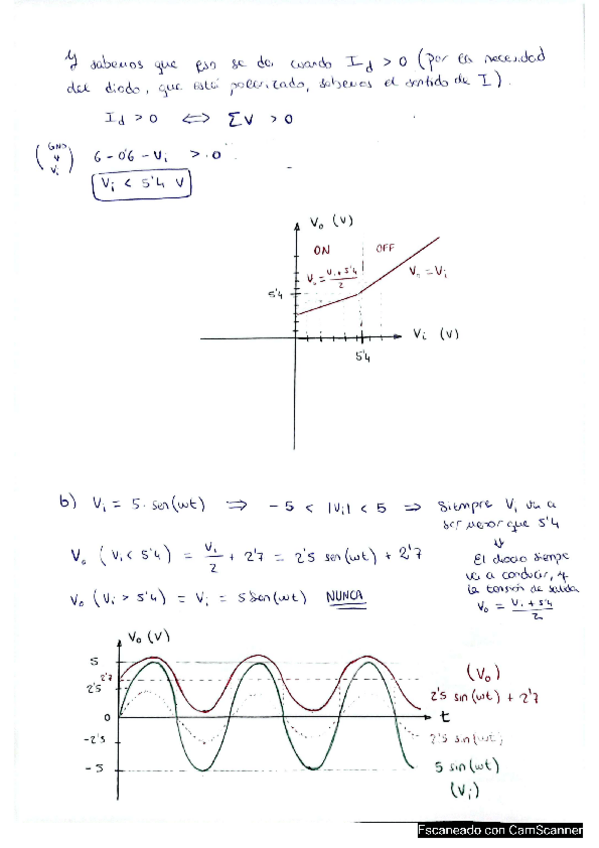 Y sabemos que eso se da cuando Id > 0 (por la necesidad
del diodo, que está polarizado, sabemos el sentido de I).
Id > 0 ⟺ ΣV > 0
(GND
↓
Vi) 6 - 0'6 - Vi > 0
Vi < 5'4 V
Vo (V)
ON OFF
Vo = Vi + 5'4 / 2
Vo = Vi
5'4
Vi (V)
5'4
b) Vi = 5 · sen(wt) ⟹ - 5 < |Vi| < 5 ⟹ Siempre Vi va a
ser menor que 5'4
⇓
Vo (Vi < 5'4) = Vi/2 + 2'7 = 2'5 sen(wt) + 2'7
El diodo siempre
va a conducir, y
la tensión de salida
Vo = Vi + 5'4 / 2
Vo (Vi > 5'4) = Vi = 5 sen(wt) NUNCA
Vo (V)
5
2'7
2'5
0
-2'5
-5
(Vo)
2'5 sin(wt) + 2'7
t
2'5 sin(wt)
5 sin(wt)
(Vi)
Escaneado con CamScanner